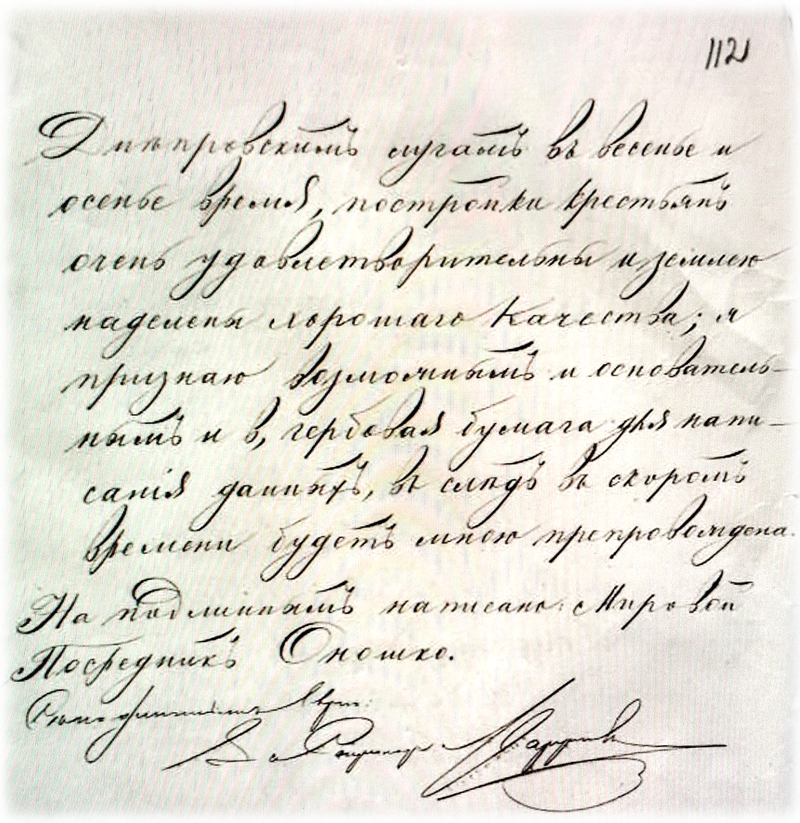 112
Днѣпровскимъ лугамъ въ весенье и
осенье время, постройки крестьянъ
очень удовлетворительны и землею
наделены хорошаго качества; я
признаю возможнымъ и основатель-
нымъ и в, гербовая бумага для напи-
санія данныхъ, въ слѣдъ въ скоромъ
времени будетъ мною препровождена.
На подлинномъ написано: Мировой
Посредникъ Оношко.
Съ подлиннымъ верно:
За